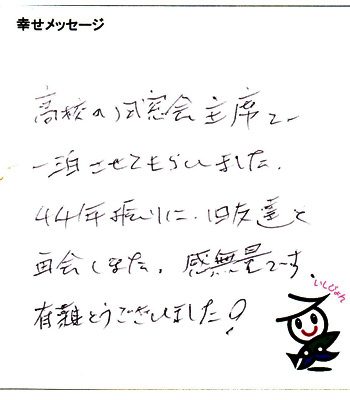 幸せメッセージ
高校の同窓会主席で
一泊させてもらいました.
44年振りに、旧友達と
再会しました。感無量です、
有難とうございました!
いしぴょん